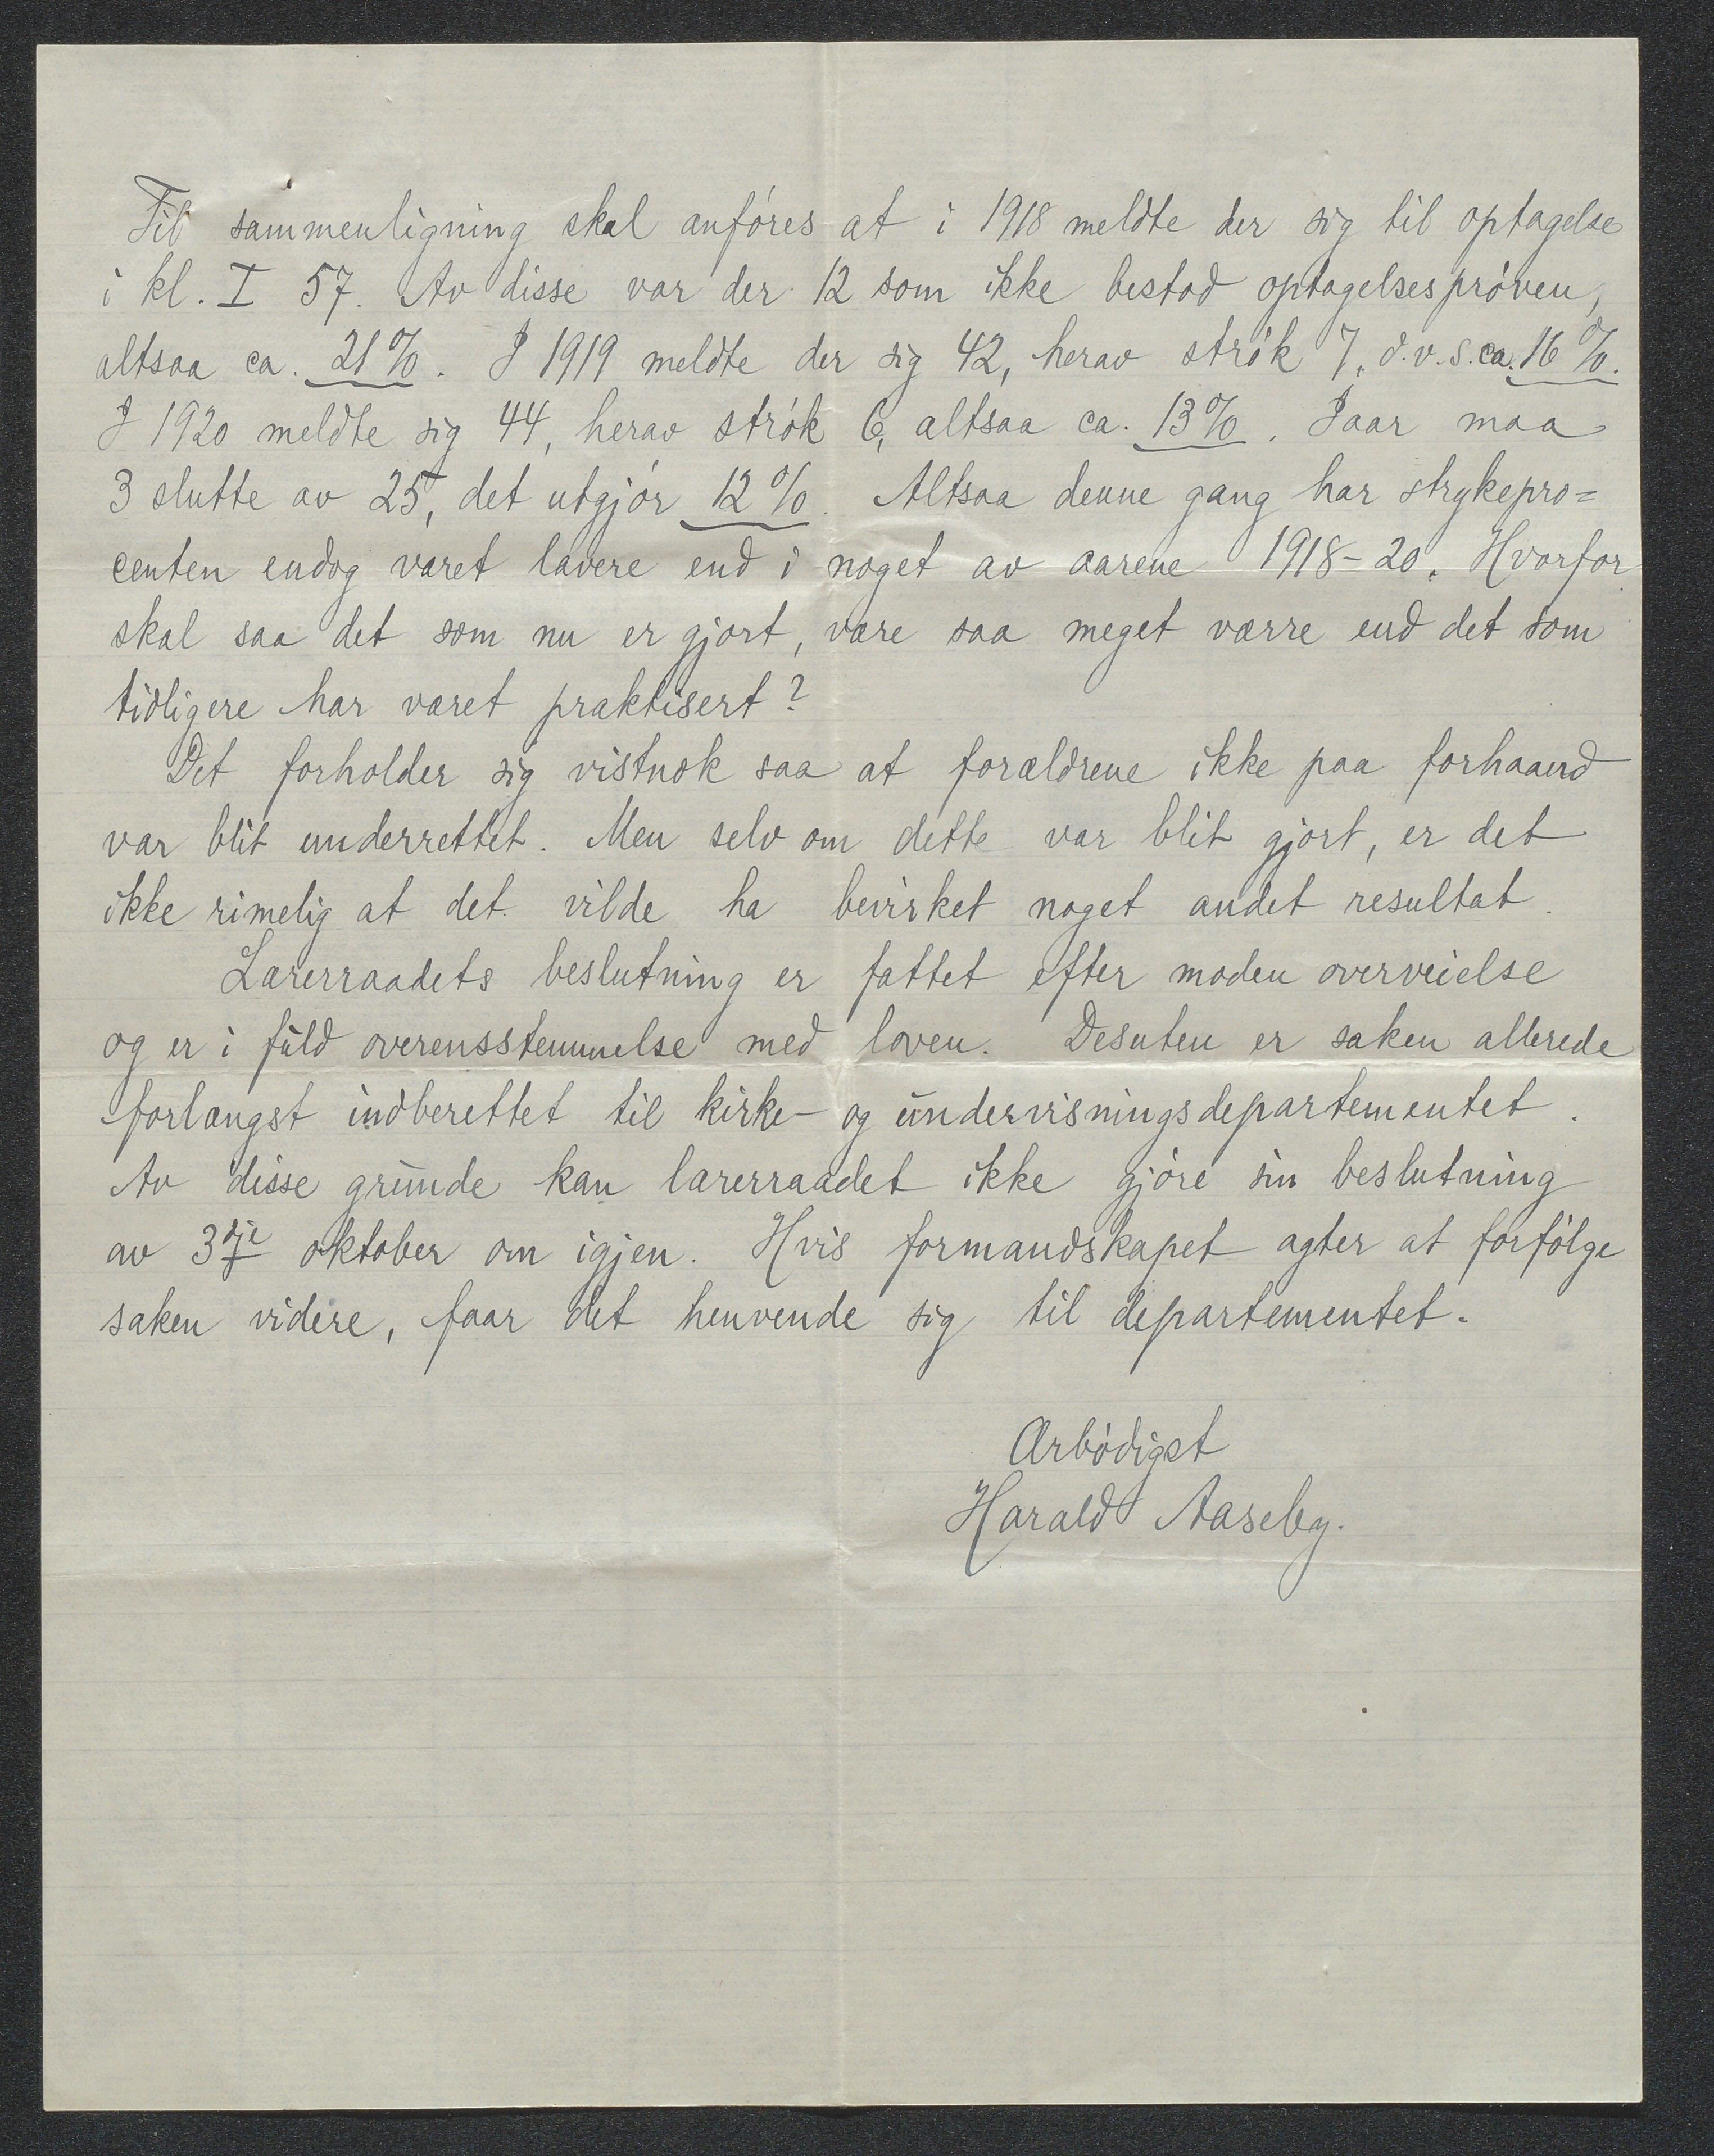 Til sammenligning skal anføres at i 1918 meldte der sig til optagelse
i kl. I 57. Av disse var der 12 som ikke bestod optagelsesprøven,
altsaa ca. 21%. I 1919 meldte der sig 42, herav strøk 7, d.v.s. ca. 16%.
I 1920 meldte sig 44, herav strøk 6, altsaa ca. 13%. Iaar maa
3 slutte av 25, det utgjør 12%. Altsaa denne gang har strykepro=
centen endog været lavere end i noget av aarene 1918-20. Hvorfor
skal saa det som nu er gjort, være saa meget værre end det som
tidligere har været praktisert?
Det forholder sig vistnok saa at forældrene ikke paa forhaand
var blit underrettet. Men selv om dette var blit gjort, er det
ikke rimelig at det vilde ha bevirket noget andet resultat.
Lærerraadets beslutning er fattet efter moden overveielse
og er i fuld overensstemmelse med loven. Desuten er saken allerede
forlængst indberettet til kirke- og undervisningsdepartementet.
Av disse grunde kan lærerraadet ikke gjøre sin beslutning
av 3dje oktober om igjen. Hvis formandskapet agter at forfølge
saken videre, faar det henvende sig til departementet.
Ærbødigst
Harald Aaseby.